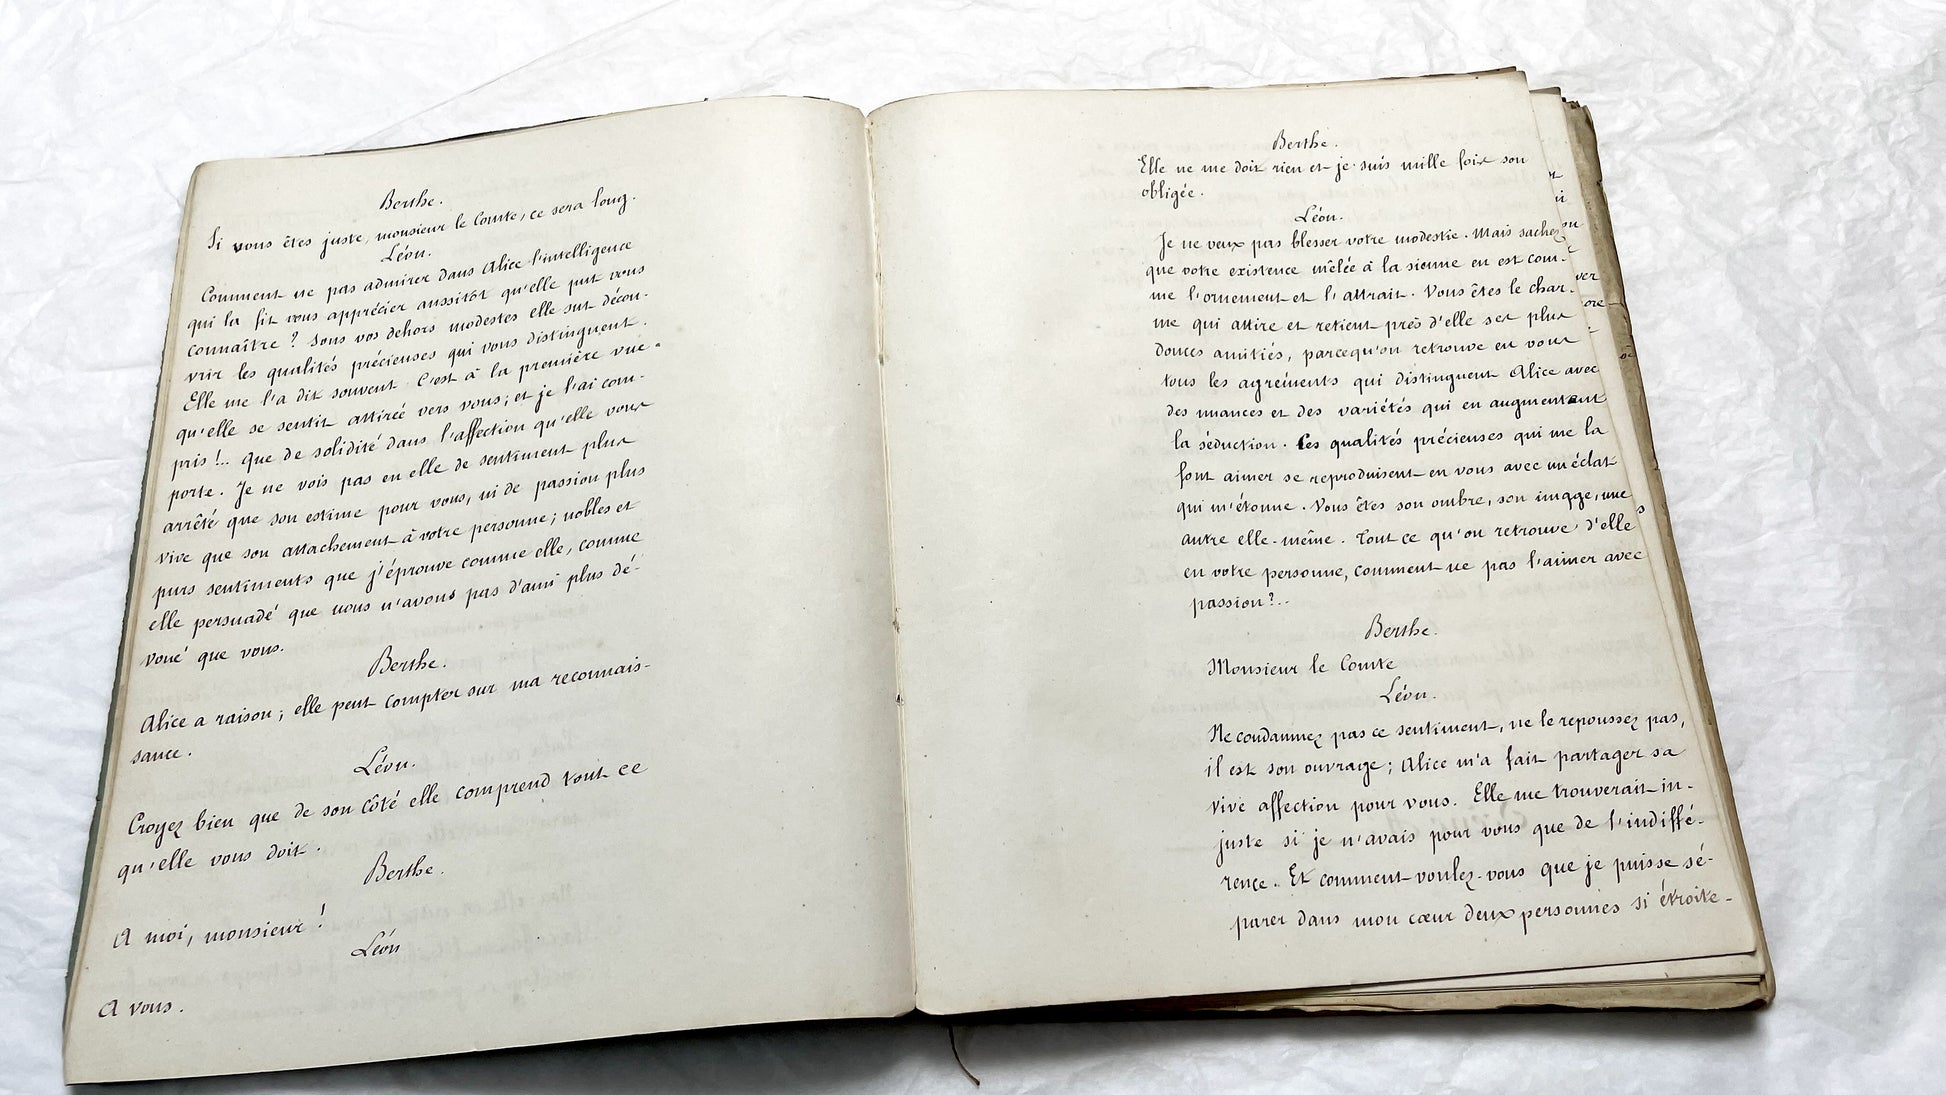 Berthe.
Si vous êtes juste, monsieur le Comte, ce sera long.
Léon.
Comment ne pas admirer dans Alice l'intelligence
qui la fit vous apprécier aussitôt qu'elle put vous
connaître ? Sous vos dehors modestes elle sut décou-
vrir les qualités précieuses qui vous distinguent.
Elle me l'a dit souvent. C'est à la première vue
qu'elle se sentit attirée vers vous ; et je l'ai com-
pris !.. Que de solidité dans l'affection qu'elle vous
porte. Je ne vois pas en elle de sentiment plus
arrêté que son estime pour vous, ni de passion plus
vive que son attachement à votre personne ; nobles et
purs sentiments que j'éprouve comme elle, comme
elle persuadé que nous n'avons pas d'ami plus dé-
voué que vous.
Berthe.
Alice a raison ; elle peut compter sur ma reconnais-
sance.
Léon.
Croyez bien que de son côté elle comprend tout ce
qu'elle vous doit.
Berthe.
A moi, monsieur !
Léon
A vous.
Berthe.
Elle ne me doit rien et je suis mille fois son
obligée.
Léon.
Je ne veux pas blesser votre modestie. Mais sachez
que votre existence mêlée à la sienne en est com-
me l'ornement et l'attrait. Vous êtes le char-
me qui attire et retient près d'elle ses plus
douces amitiés, parcequ'on retrouve en vous
tous les agréments qui distinguent Alice avec
des nuances et des variétés qui en augmentent
la séduction. Les qualités précieuses qui me la
font aimer se reproduisent en vous avec un éclat
qui m'étonne. Vous êtes son ombre, son image, une
autre elle-même. Tout ce qu'on retrouve d'elle
en votre personne, comment ne pas l'aimer avec
passion ?..
Berthe.
Monsieur le Comte
Léon.
Ne condamnez pas ce sentiment, ne le repoussez pas,
il est son ouvrage ; Alice m'a fait partager sa
vive affection pour vous. Elle me trouverait in-
juste si je n'avais pour vous que de l'indiffé-
rence. Et comment voulez-vous que je puisse sé-
parer dans mon cœur deux personnes si étroite-